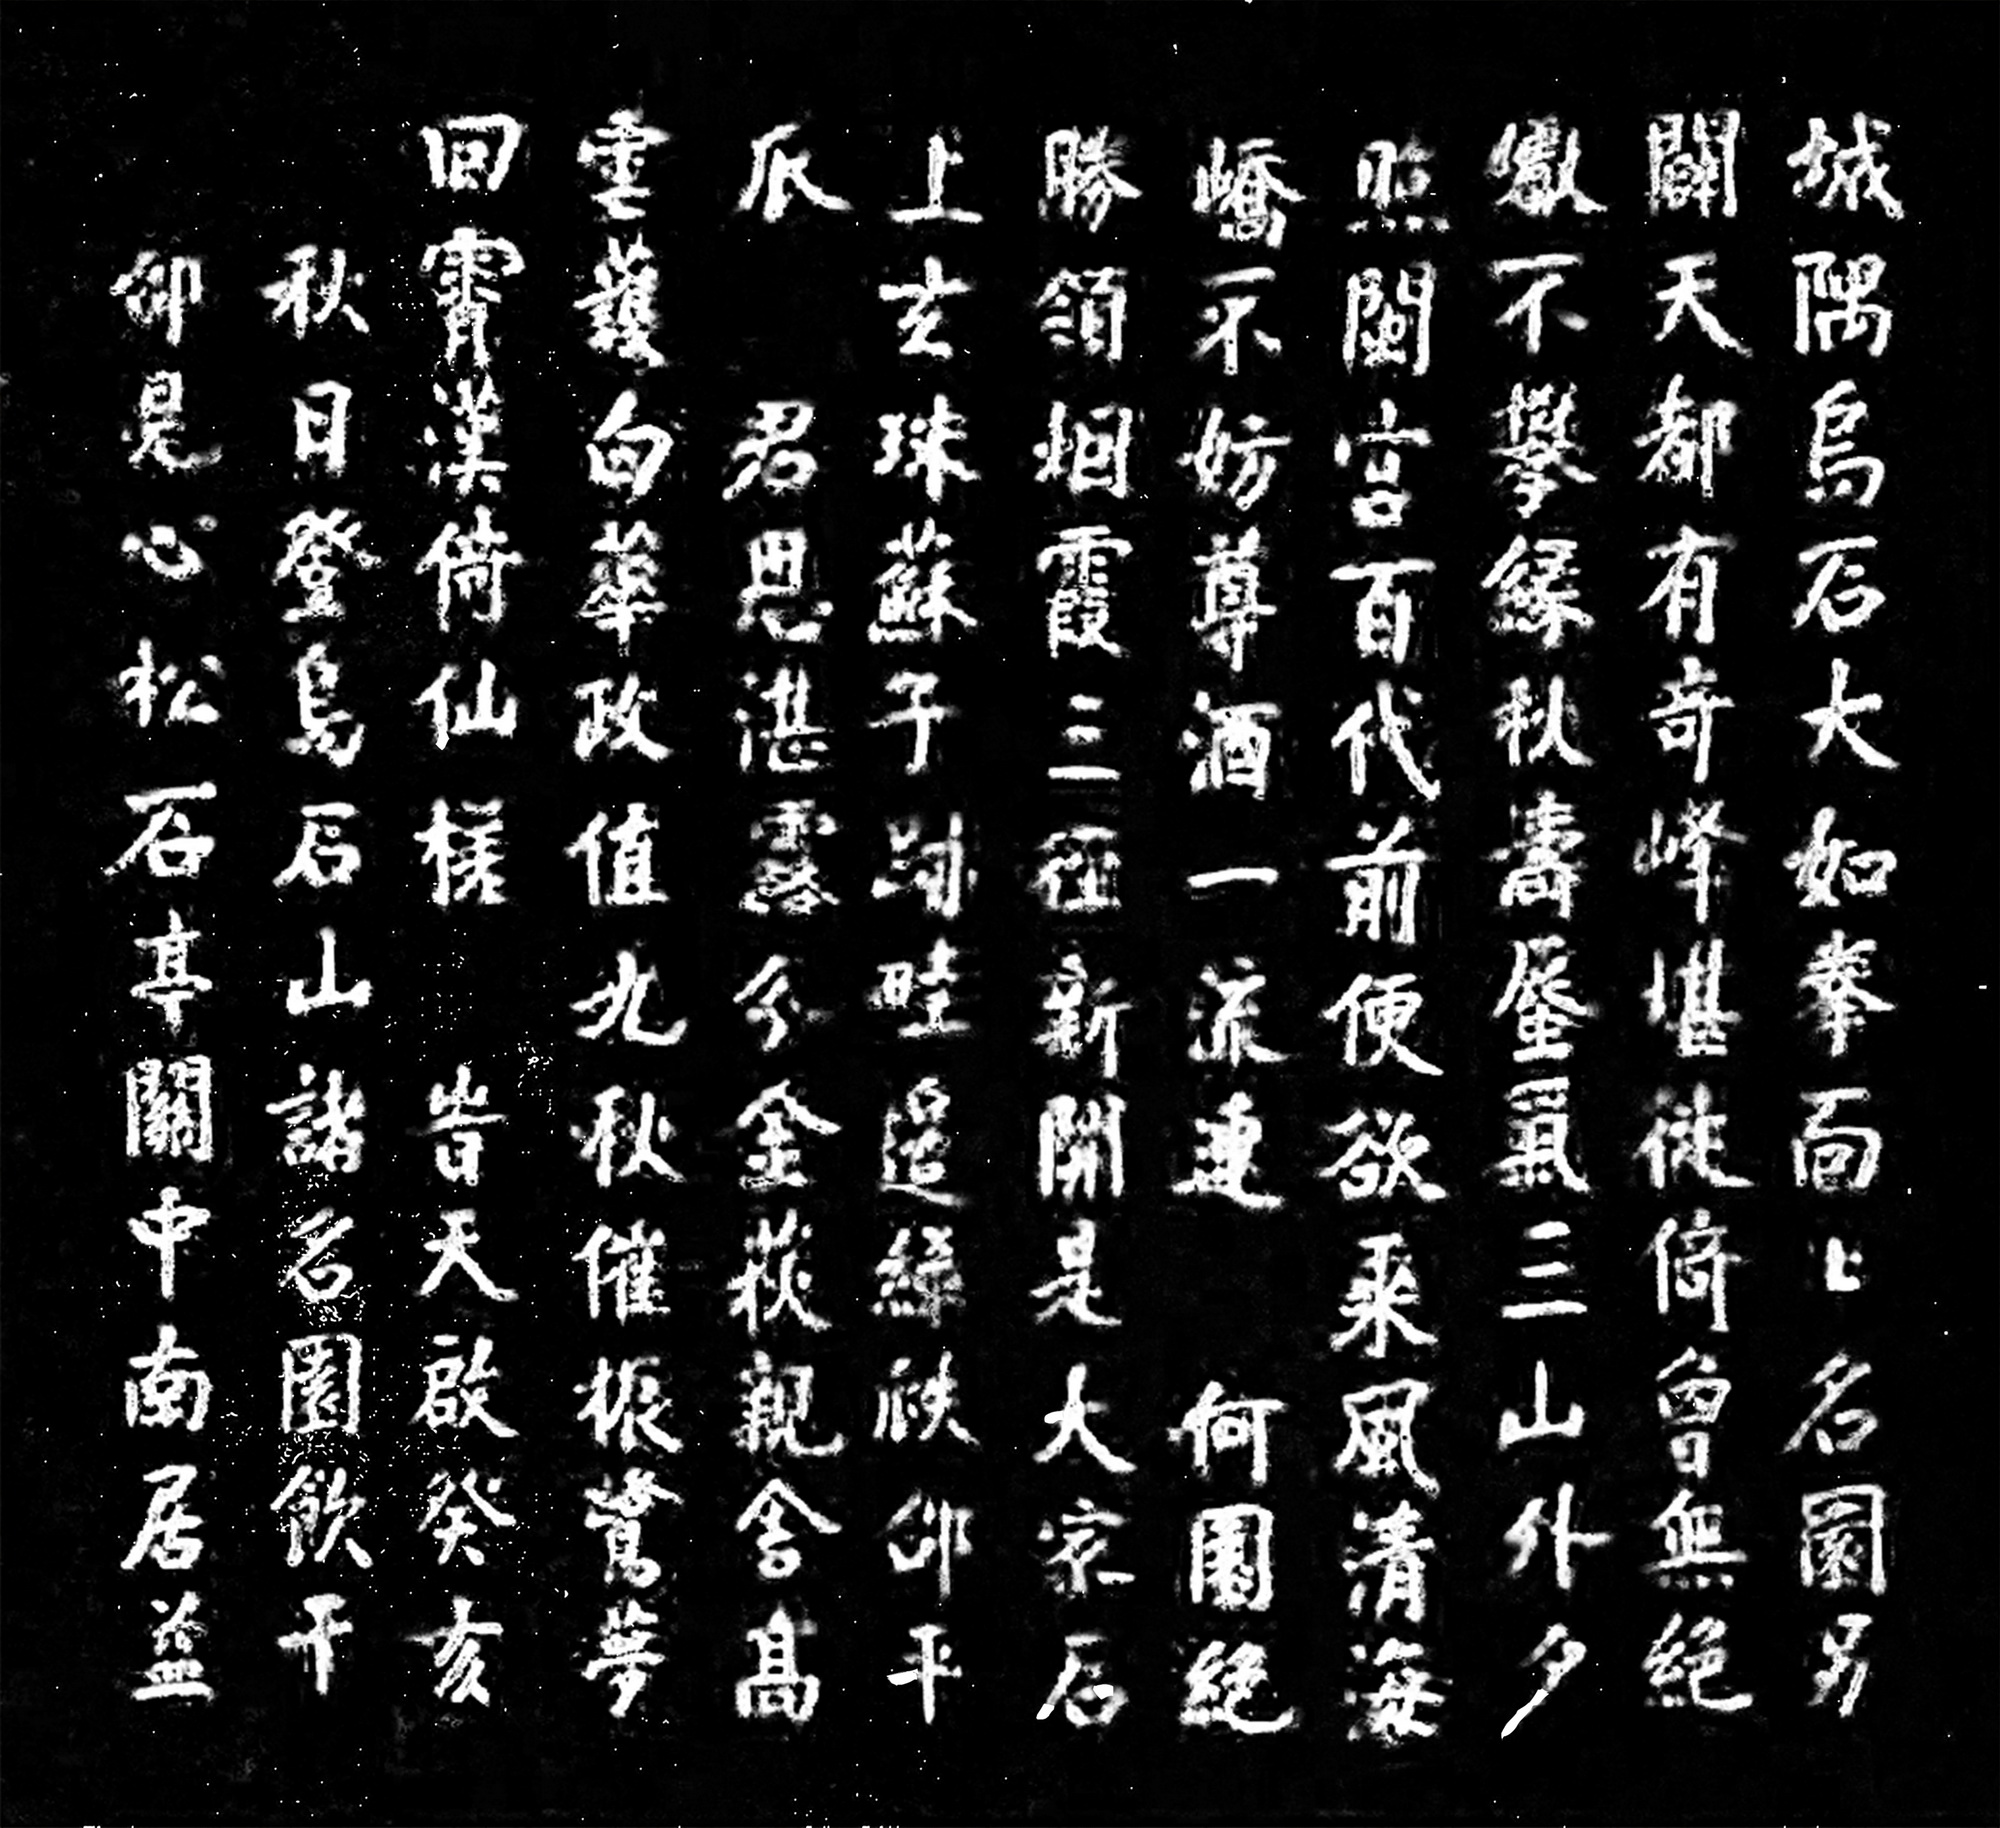 城隅烏石大如拳面〻名園另
闢天都有奇峰堪徙倚曾無絕
巘不攀緣秋濤蜃氣三山外夕
照閩宮百代前便欲乘風清海
嶠不妨尊酒一流連 何園絕
勝領烟霞三徑新開是大家石
上玄珠蘇子跡畦邊緜瓞邵平
瓜 君恩湛露分金莢親舍高
雲護白華政值九秋催振鷺夢
回霄漢倚仙槎 旹天啟癸亥
秋日登烏石山諸名園飲于
仰是心松石亭關中南居益